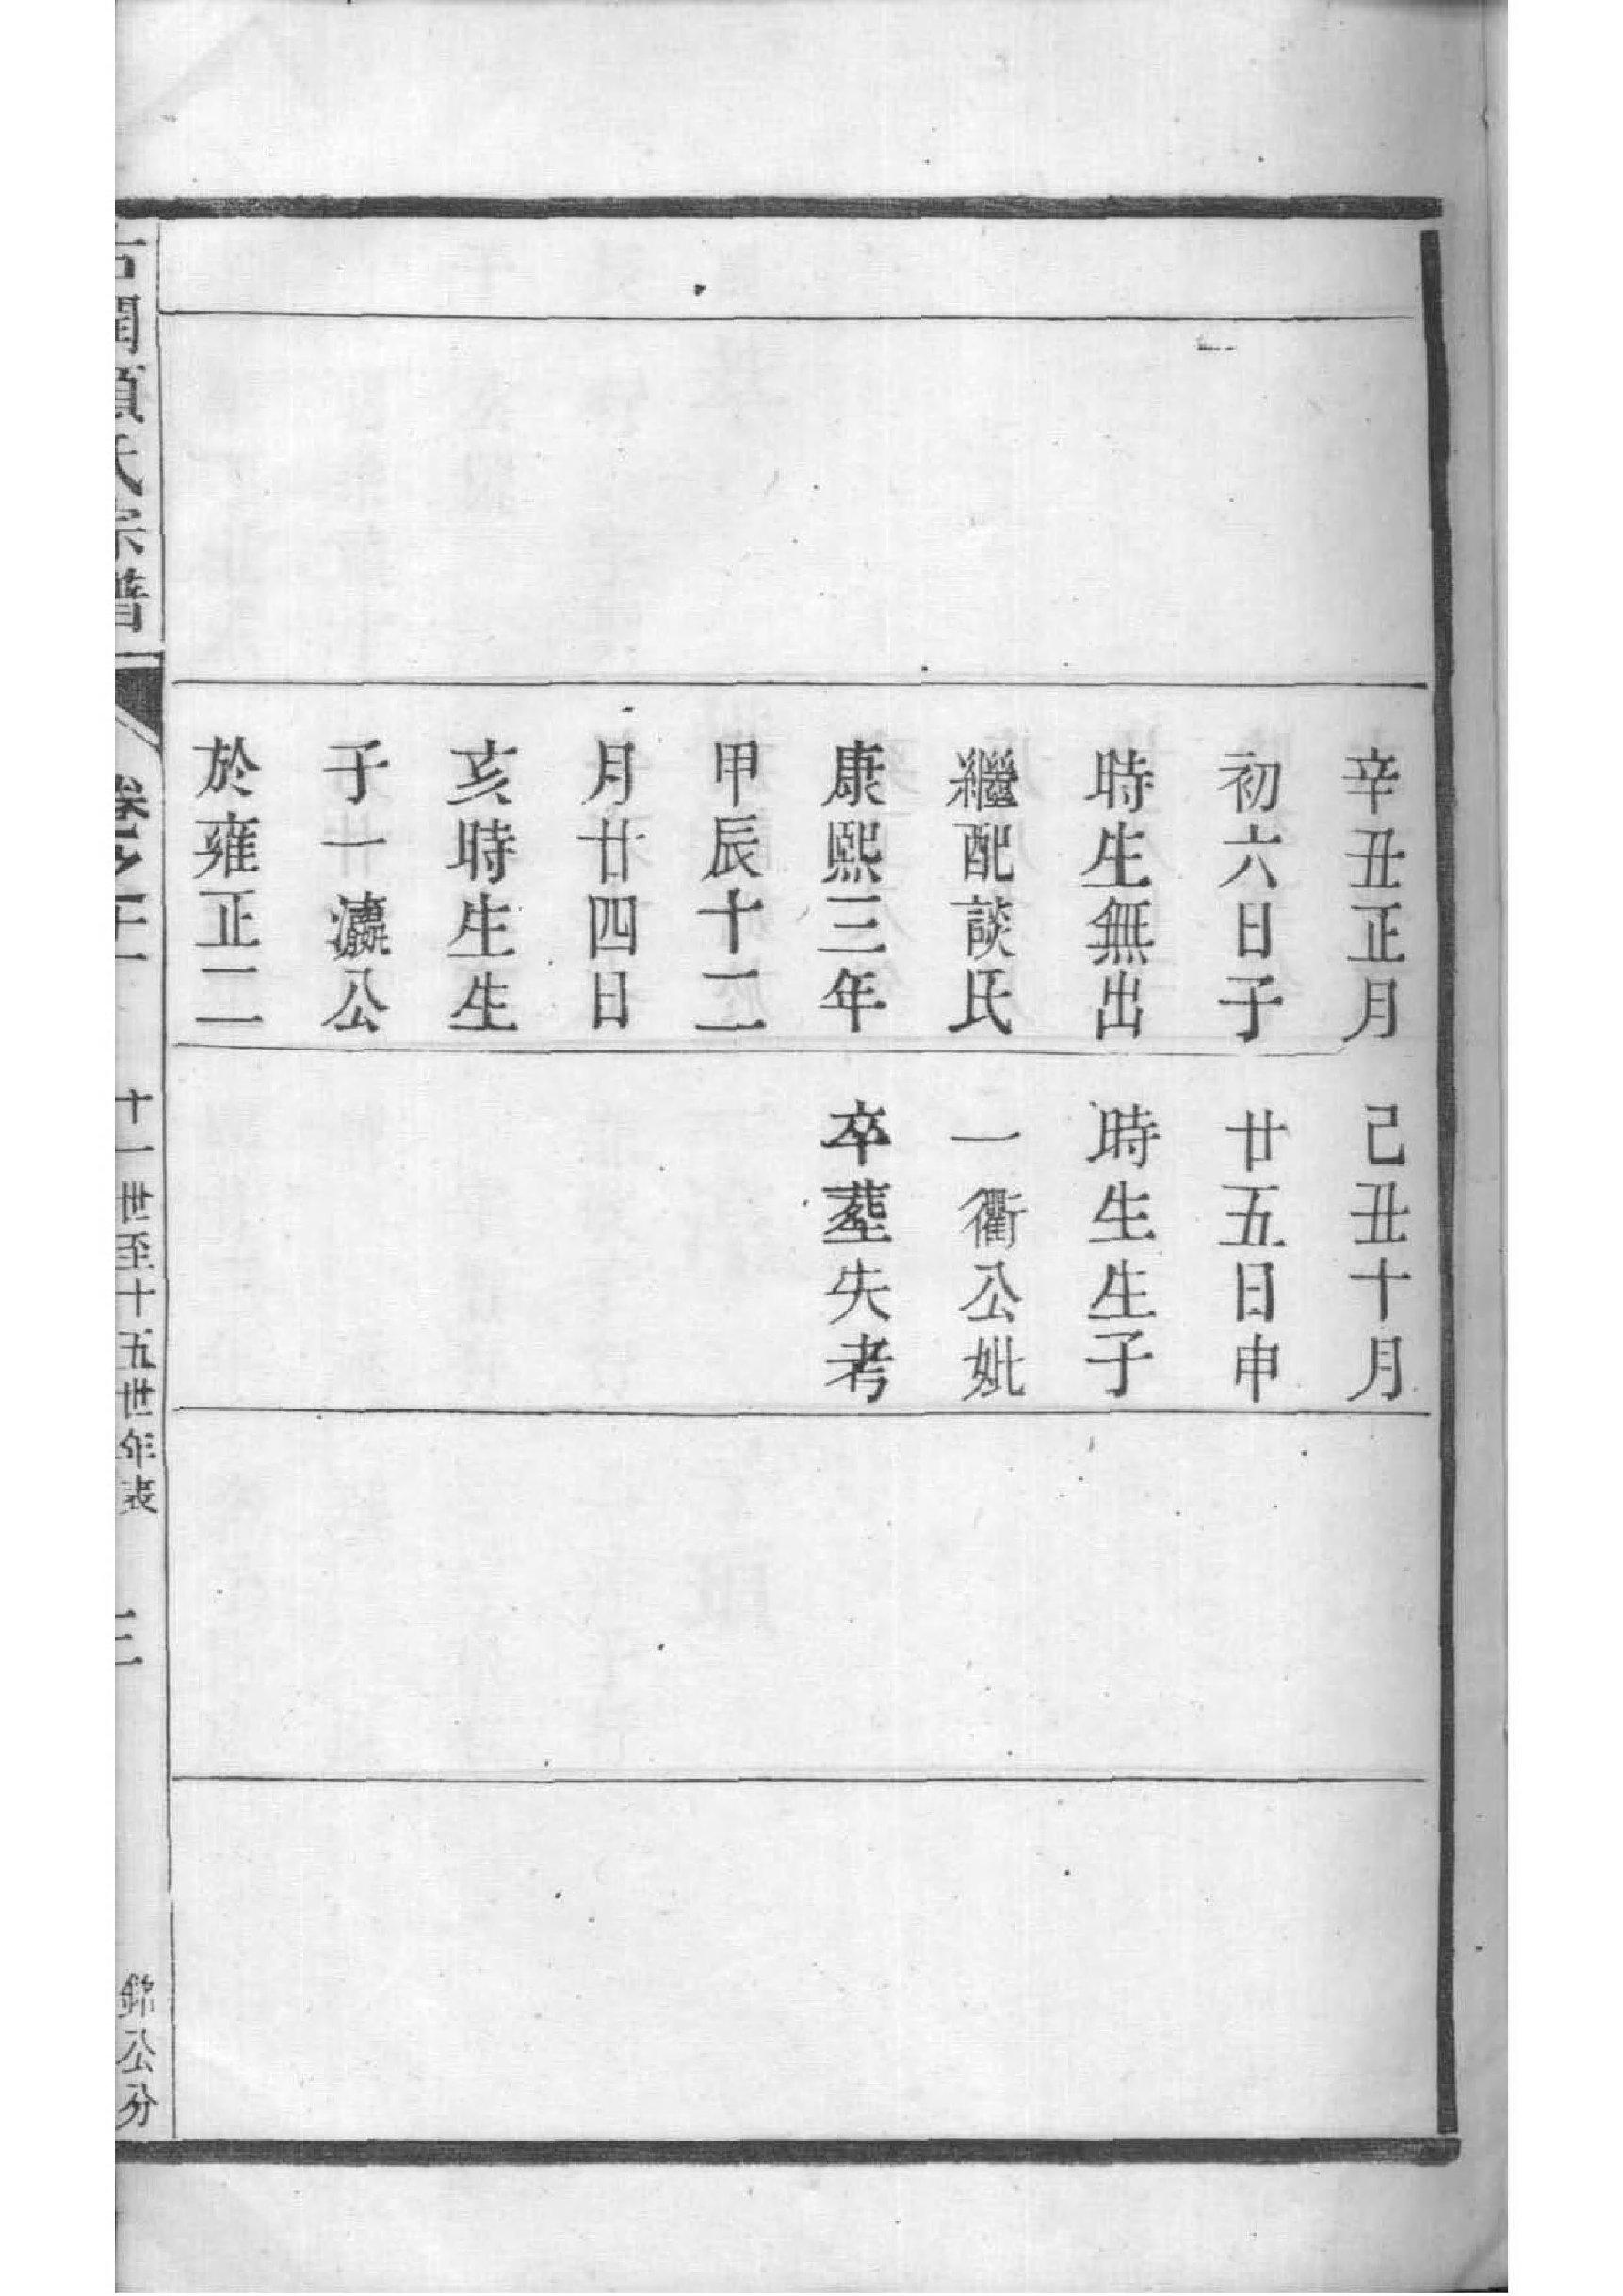 辛丑正月
初六日子
時生無出
繼配談氏
康熙三年
甲辰十二
月廿四日
亥時生生
子一灜公
於雍正二
己丑十月
廿五日申
時生生子
一衢公妣
卒葬失考
氏宗譜
卷之十一
十一世至十五世年表
公分